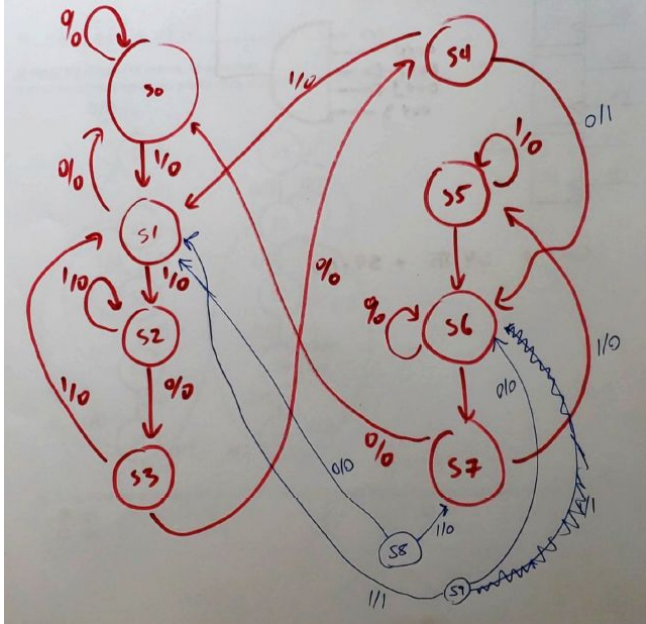 0/0
S0
S4
1/0
0/0
1/0
0/1
1/0
S5
S1
1/0
1/0
0/0
S2
0/0
S6
0/0
1/0
1/0
0/0
S3
0/0
S7
0/0
S8
1/0
S9
1/1